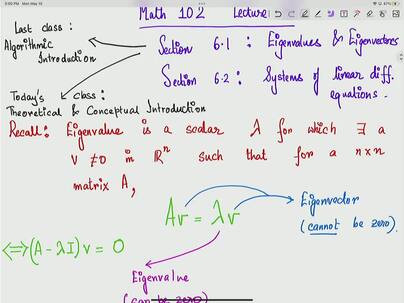 5:00 PM Mon May 10
Math 102 Lecture
Last class :
Algorithmic
Introduction
Section 6.1 : Eigenvalues & Eigenvectors
Section 6.2 : Systems of linear diff.
equations.
Today's class :
Theoretical & Conceptual Introduction
Recall : Eigenvalue is a scalar λ for which ∃ a
v ≠ 0 in ℝⁿ such that for a n×n
matrix A,
Av = λv
Eigenvector
(cannot be zero).
⟺ (A - λI) v = 0
Eigenvalue
(can be zero)